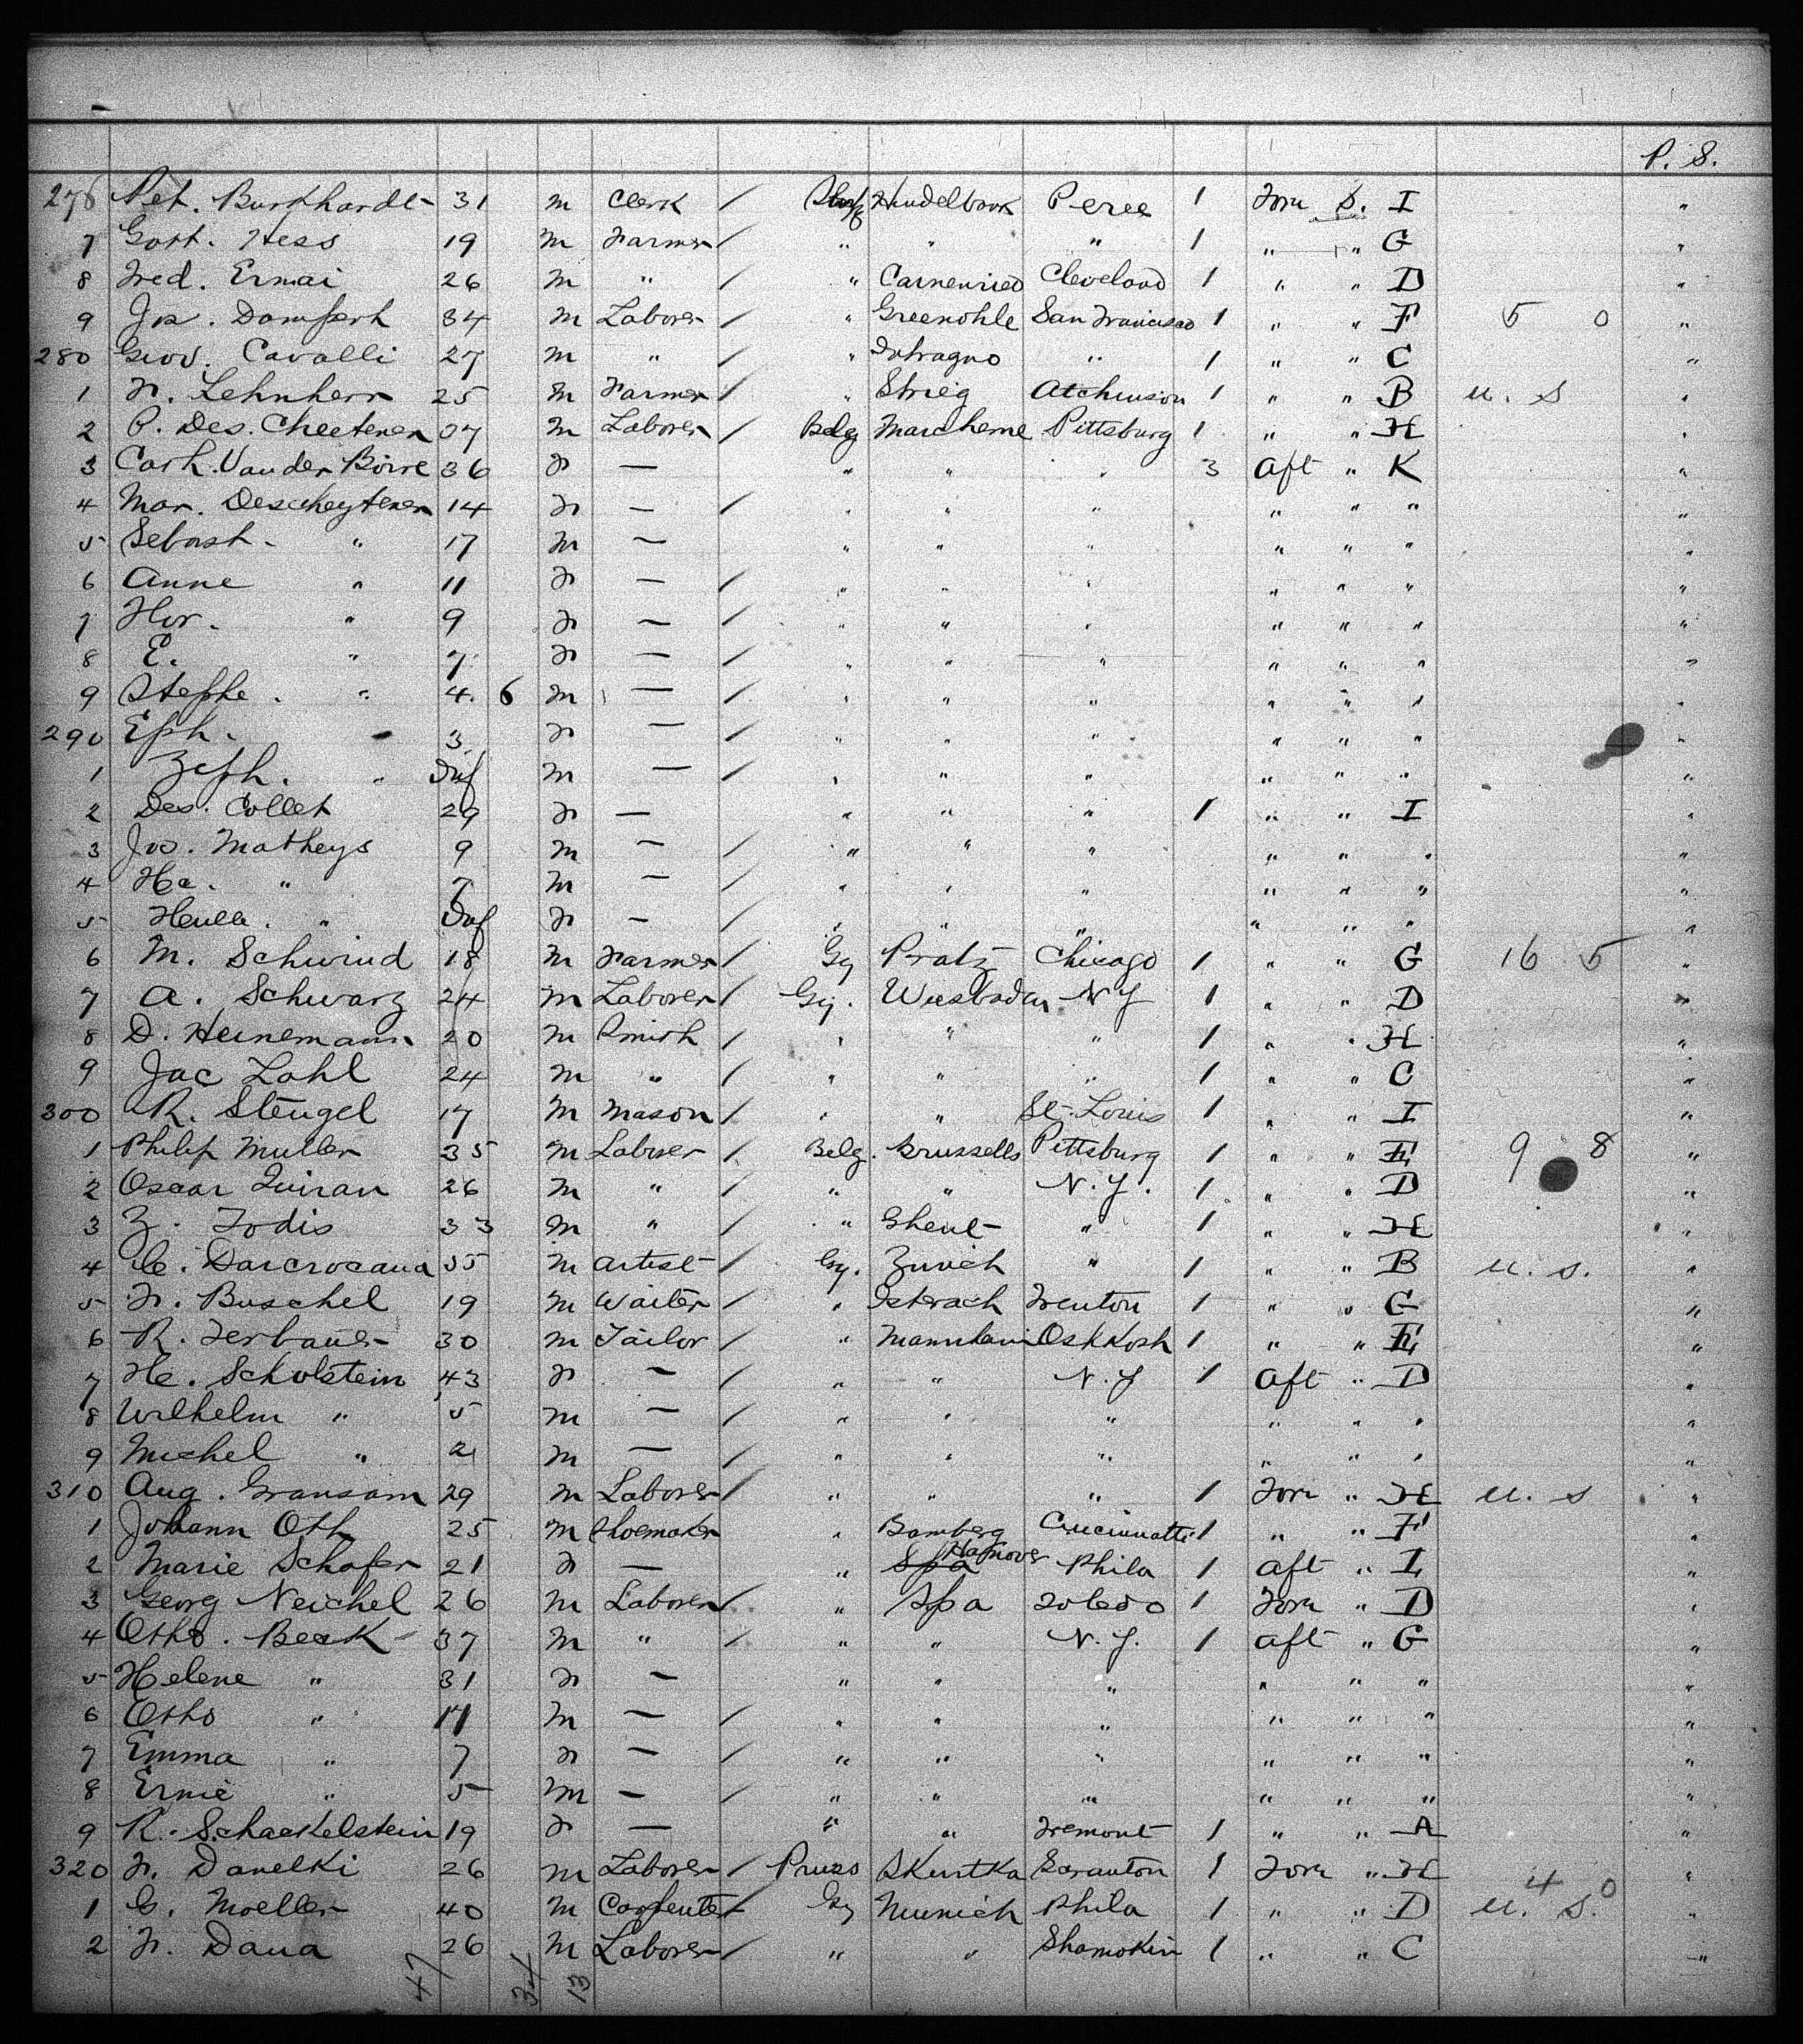 P. S.
276 Pet. Burkhardt 31 m Clerk / Hindelbank Peree 1 Forw S. I "
7 Gott. Hess 19 m Farmer / " " " 1 " " G "
8 Fred. Ermai 26 m " / " Carnenried Cleveland 1 " " D "
9 Jos. Dampert 34 m Laborer / " Greenohle San Francisco 1 " " F 5 0 "
280 Giov. Cavalli 27 m " / " Intragno " 1 " " C "
1 F. Lehnherr 25 m Farmer / " Atchinson 1 " " B u. s "
2 P. Des. Cheetener 37 m Laborer / Belg Marcheme Pittsburg 1 " " H "
3 Cath. Van der Börre 36 F — " " " 3 Aft " K "
4 Mar. Descheytener 14 F — / " " " " " " "
5 Sebast. " 17 m — " " " " " " "
6 Anne " 11 F — / " " " " " " "
7 Flor. " 9 F — / " " " " " " "
8 E. " 7 F — / " " " " " " "
9 Stephe. " 4. 6 m — / " " " " " " "
290 Eph. " 3 F — / " " " " " " "
1 Zeph. " Inf m — / " " " " " " "
2 Des. Collet 29 F — " " " 1 " " I "
3 Jos. Matheys 9 m — / " " " " " " "
4 He. " 7 m — / " " " " " " "
5 " Inf F — / " " " " " " "
6 M. Schwind 18 m Farmer / Gy Pratz Chicago 1 " " G 16 5 "
7 A. Schwarz 24 m Laborer / Gy. Wiesbaden N Y 1 " " D "
8 D. Heinemann 20 m Smith / " " " 1 " " H "
9 Jac Lahl 24 m " / " " " 1 " " C "
300 R. Stengel 17 m Mason / " " St. Louis 1 " " I "
1 Philip Muller 35 m Laborer / Belg. Brussells Pittsburg 1 " " E 9 8 "
2 Oscar Quiran 26 m " / " " N. Y. 1 " " D "
3 Z. Todis 33 m " / " Ghent " 1 " " H "
4 C. Darcrocana 55 m Artist / Gy. Zurich " 1 " " B u. s. "
5 F. Buschel 19 m Waiter / " Isterach Trenton 1 " " G "
6 R. Ferbauer 30 m Tailor / " Mannhaim Oshkosh 1 " " E "
7 He. Scholstein 43 F — / " " N. Y 1 Aft " D "
8 Wilhelm " 5 m — / " " " " " " "
9 Michel " 2 m — / " " " " " " "
310 Aug. Gransam 29 m Laborer / " " " 1 Forw " H u. s "
1 Johann Oth 25 m Shoemaker " Bamberg Cincinnatti 1 " " F "
2 Marie Schafer 21 F — " Spa Hanover Phila 1 Aft " I "
3 Georg Neichel 26 m Laborer / " Spa Toledo 1 Forw " D "
4 Otto. Beck 37 m " / " " N. Y. 1 Aft " G "
5 Helene " 31 F — " " " " " " "
6 Otto " 11 m — / " " " " " " "
7 Emma " 7 F — / " " " " " " "
8 Ernie " 5 m — / " " " " " " "
9 R. Schackelstein 19 F — " " Tremont 1 " " A "
320 F. Danelki 26 m Laborer / Pruss Skurtka Scranton 1 Forw " H "
1 G. Moeller 40 m Carpenter / Gy Munich Phila 1 " " D u. s. 4 0 "
2 F. Dana 26 m Laborer / " " Shamokin 1 " " C "
47 34 13